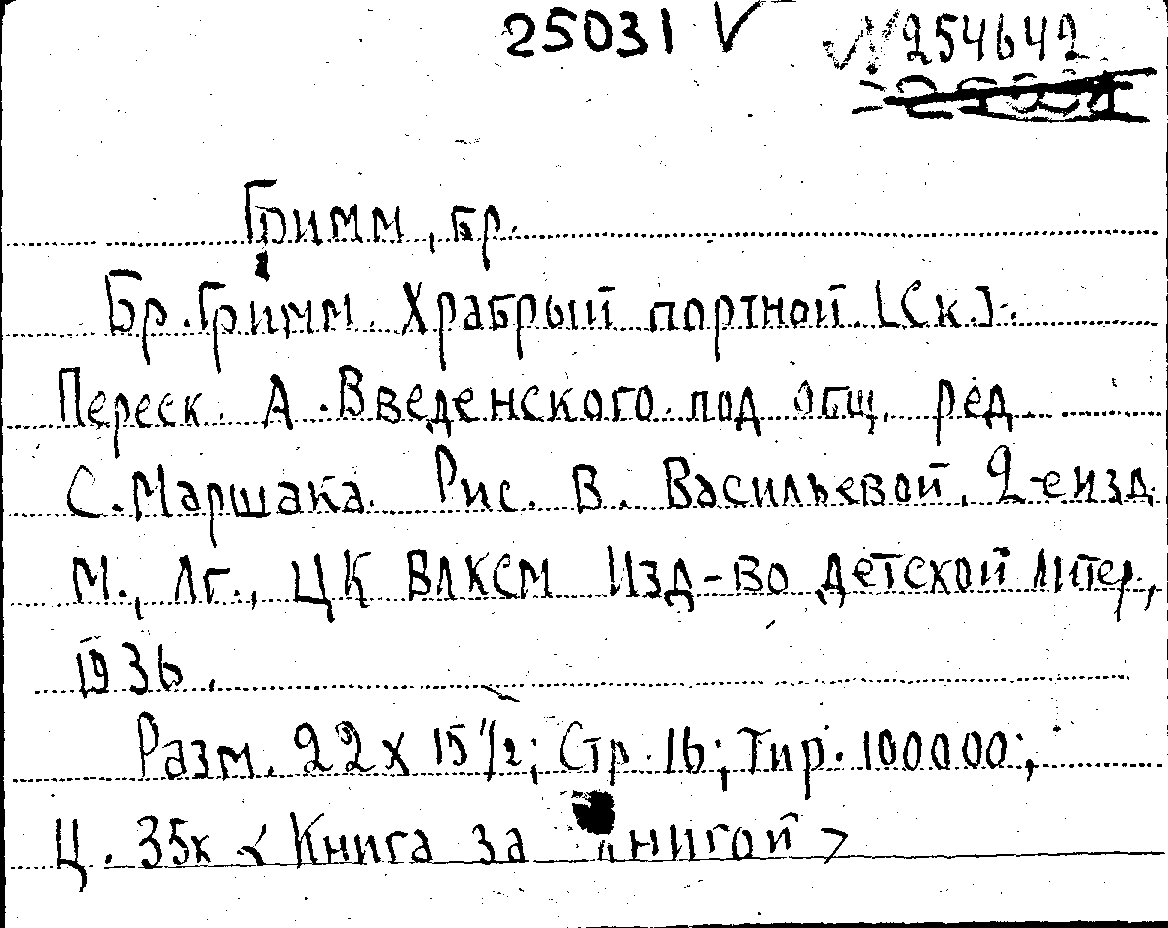 25031 V № 254642
Гримм, бр.
Бр. Гримм. Храбрый портной. [Ск.].
Переск. А. Введенского под общ. ред.
С. Маршака. Рис. В. Васильевой. 2-е изд.
М., Лг., ЦК ВЛКСМ Изд-во детской литер.,
1936.
Разм. 22 х 15 1/2; Стр. 16; Тир. 100000;
Ц. 35к < Книга за книгой >